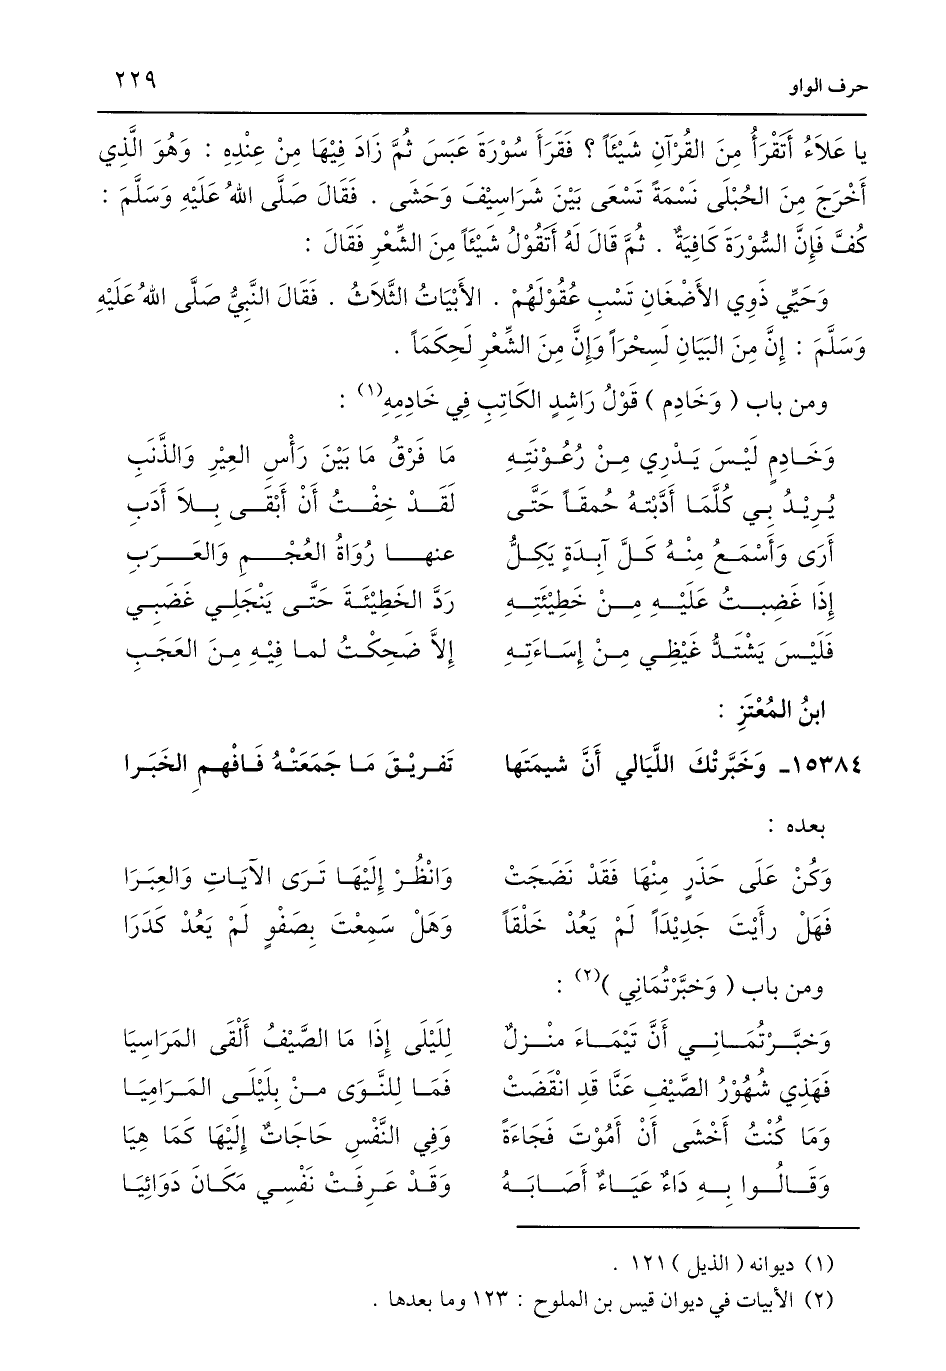 حرف الواو ٢٢٩
يا عَلاَءُ أَتَقْرَأُ مِنَ القُرْآنِ شَيْئَاً ؟ فَقَرَأَ سُوْرَةَ عَبَسَ ثُمَّ زَادَ فِيْهَا مِنْ عِنْدِهِ : وَهُوَ الَّذِي
أَخْرَجَ مِنَ الحُبْلَى نَسْمَةً تَسْعَى بَيْنَ شَرَاسِيْفَ وَحَشَى . فَقَالَ صَلَّى اللهُ عَلَيْهِ وَسَلَّمَ :
كُفَّ فَإِنَّ السُّوْرَةَ كَافِيَةٌ . ثُمَّ قَالَ لَهُ أَتَقُوْلُ شَيْئَاً مِنَ الشِّعْرِ فَقَالَ :
وَحَيِّي ذَوِي الأَضْغَانِ تَسْبِ عُقُوْلَهُمْ . الأَبْيَاتُ الثَّلاَثُ . فَقَالَ النَّبِيُّ صَلَّى اللهُ عَلَيْهِ
وَسَلَّمَ : إِنَّ مِنَ البَيَانِ لَسِحْرَاً وَإِنَّ مِنَ الشِّعْرِ لَحِكَمَاً .
ومن باب ( وَخَادِمٍ ) قَوْلُ رَاشِدٍ الكَاتِبِ فِي خَادِمِهِ(١) :
وَخَادِمٍ لَيْسَ يَدْرِي مِنْ رُعُوْنَتِهِ مَا فَرْقُ مَا بَيْنَ رَأْسِ العِيْرِ وَالذَّنَبِ
يُرِيْدُ بِي كُلَّمَا أَدَّبْتهُ حُمقَاً حَتَّى لَقَدْ خِفْتُ أَنْ أَبْقَى بِلاَ أَدَبِ
أَرَى وَأَسْمَعُ مِنْهُ كَلَّ آبِدَةٍ يَكِلُّ عنهـا رُوَاةُ العُجْـمِ وَالعَـرَبِ
إِذَا غَضِبتُ عَلَيْهِ مِنْ خَطِيْئَتِهِ رَدَّ الخَطِيْئَةَ حَتَّى يَنْجَلِي غَضَبِي
فَلَيْسَ يَشْتَدُّ غَيْظِي مِنْ إِسَاءَتِهِ إِلاَّ ضَحِكْتُ لما فِيْهِ مِنَ العَجَبِ
ابنُ المُعْتَزِ :
١٥٣٨٤ـ وَخَبَّرتْكَ اللَّيَالي أَنَّ شيمَتَها تَفرِيْقَ مَا جَمَعَتْهُ فَافْهمِ الخَبَرا
بعده :
وَكُنْ عَلَى حَذَرٍ مِنْهَا فَقَدْ نَضَجَتْ وَانْظُرْ إِلَيْهَا تَرَى الآيَاتِ وَالعِبَرَا
فَهَلْ رأَيْتَ جَدِيْدَاً لَمْ يَعُدْ خَلْقَاً وَهَلْ سَمِعْتَ بِصَفْوٍ لَمْ يَعُدْ كَدَرَا
ومن باب ( وَخبَّرْتُمَانِي )(٢) :
وَخبَّـرْتُمَـانِـي أَنَّ تَيْمَـاءَ منْـزِلٌ لِلَيْلَى إِذَا مَا الصَّيْفُ أَلْقَى المَرَاسِيَا
فَهَذِي شُهُوْرُ الصَّيْفِ عَنَّا قَدِ انْقَضَتْ فَمَا لِلنَّوَى مِنْ بِلَيْلَى المَرَامِيَا
وَمَا كُنْتُ أَخْشَى أَنْ أَمُوْتَ فَجَاءَةً وَفِي النَّفْسِ حَاجَاتٌ إِلَيْهَا كَمَا هِيَا
وَقَـالُـوا بِـهِ دَاءٌ عَيَـاءٌ أَصَـابَـهُ وَقَدْ عَرِفَتْ نَفْسِي مَكَانَ دَوَائِيَا
(١) ديوانه ( الذيل ) ١٢١ .
(٢) الأبيات في ديوان قيس بن الملوح : ١٢٣ وما بعدها .